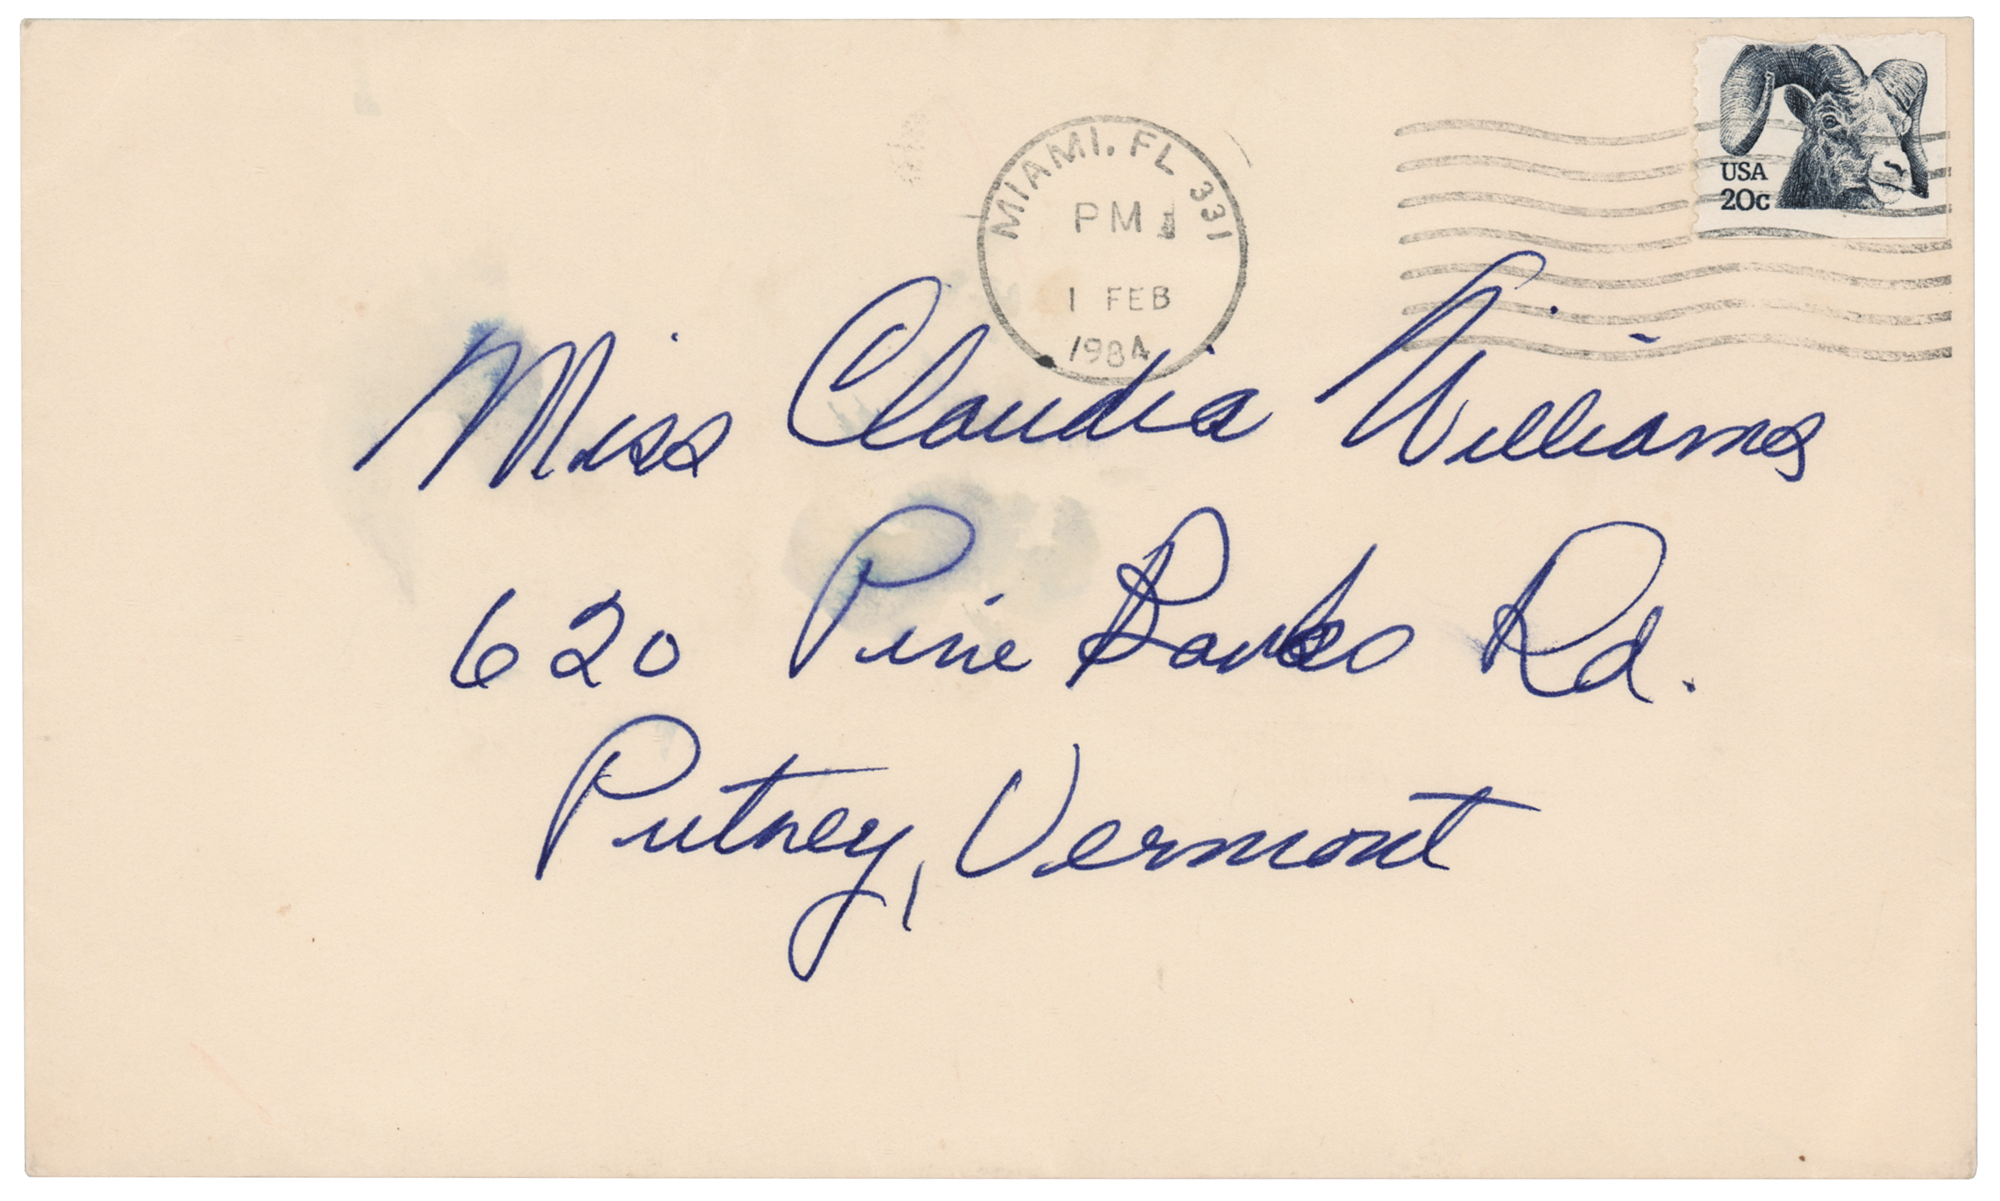 USA
20c
MIAMI, FL 331
PM
1 FEB
1984
Miss Claudia Williams
620 Pine Banks Rd.
Putney, Vermont